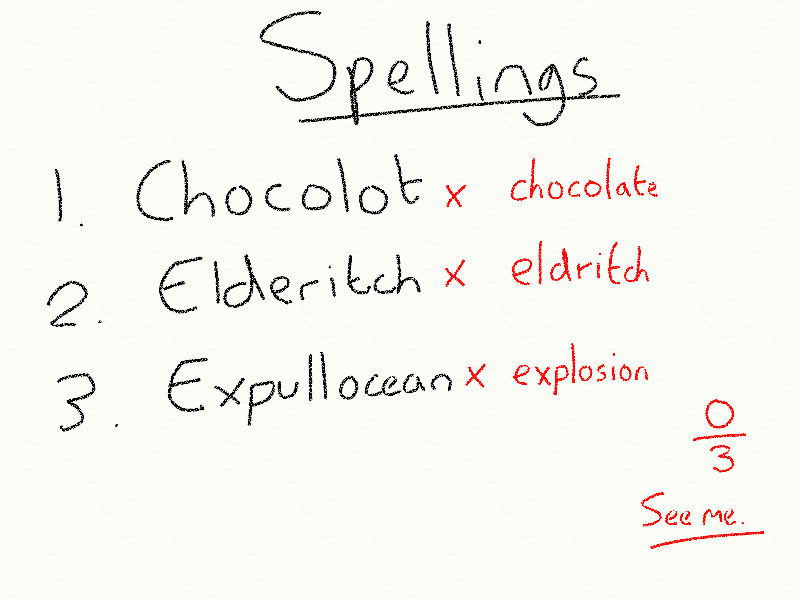 Spellings
1. Chocolot x chocolate
2. Elderitch x eldritch
3. Expullocean x explosion
0
3
See me.